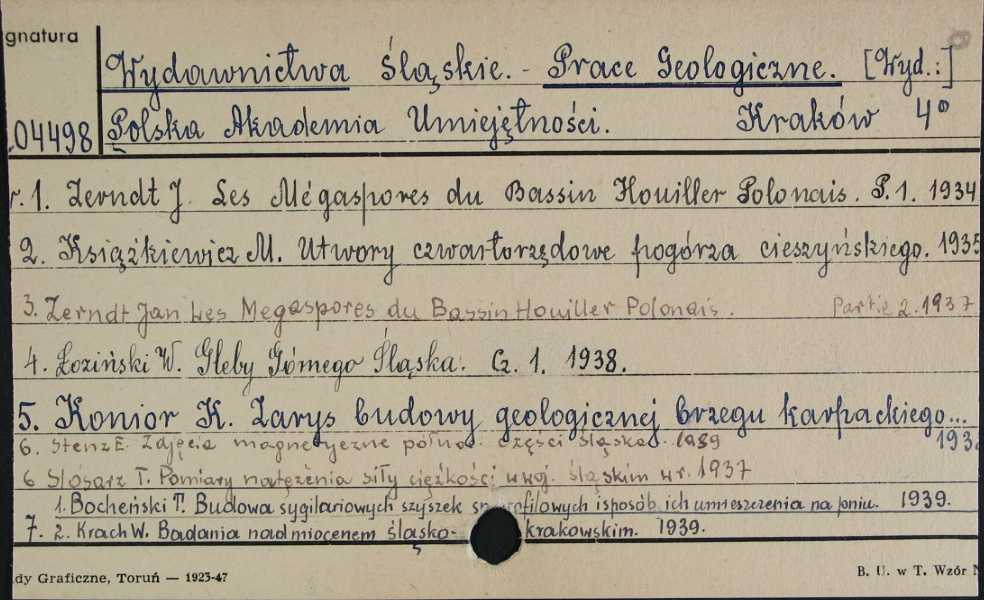 gnatura
Wydawnictwa Śląskie. - Prace Geologiczne. [Wyd.:]
04498 Polska Akademia Umiejętności. Kraków 4°
r. 1. Zerndt J. Les Mégaspores du Bassin Houiller Polonais. P. 1. 1934
2. Książkiewicz M. Utwory czwartorzędowe pogórza cieszyńskiego. 1935
3. Zerndt Jan Les Megaspores du Bassin Houiller Polonais. Partie 2. 1937
4. Łoziński W. Gleby Górnego Śląska. Cz. 1. 1938.
5. Konior K. Zarys budowy geologicznej brzegu karpackiego...
193
6. Stenz E. Zdjęcie magnetyczne półno. części śląska. 1939
6 Ślósarz T. Pomiary natężenia siły ciężkości w woj. śląskim w r. 1937
1. Bocheński T. Budowa sygilariowych szyszek i sposób ich umieszczenia na pniu. 1939.
7. 2. Krach W. Badania nad miocenem śląsko- krakowskim. 1939.
dy Graficzne, Toruń — 1923-47
B. U. w T. Wzór N